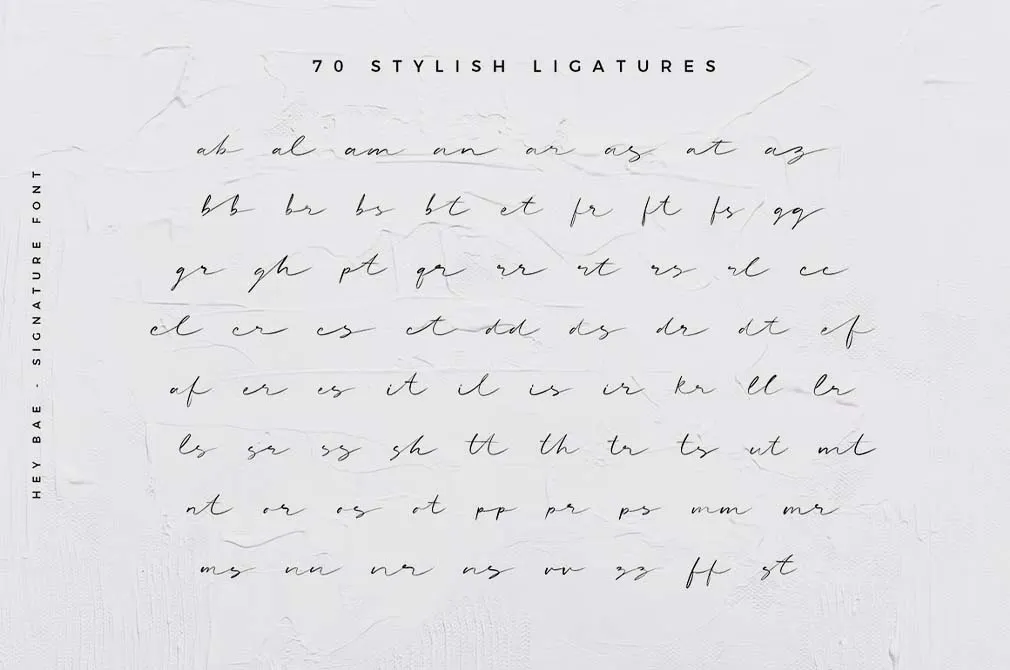 70 STYLISH LIGATURES
ab al am an ar as at az
bb br bs bt et fr ft fs gg
gr gh pt qr rr rt rs rl cc
cl cr cs ct dd ds dr dt ef
af er es it il is ir kr ll lr
ls sr ss sh tt th tr ts ut mt
nt or os ot pp pr ps mm mr
ms nn nr ns vv zz ff st
HEY BAE - SIGNATURE FONT